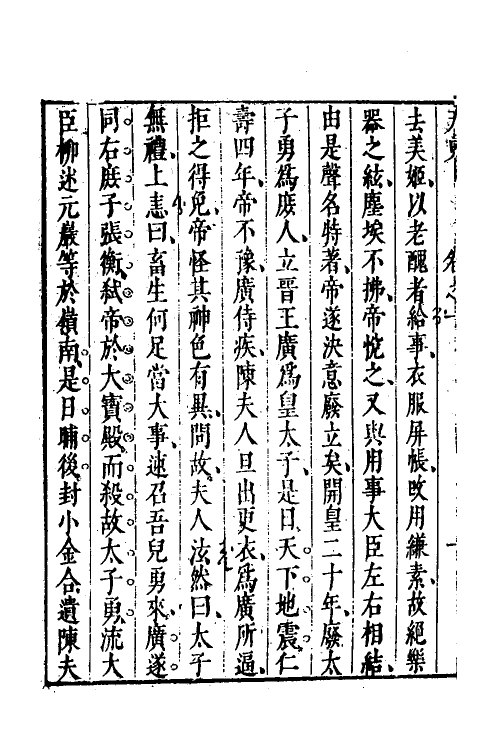 去美姬以老醜者給事衣服屏帳改用縑素故絕樂
器之絃塵埃不拂帝悅之又與用事大臣左右相結
由是聲名特著帝遂決意廢立矣開皇二十年廢太
子勇爲庶人立晉王廣爲皇太子是日天下地震仁
壽四年帝不豫廣侍疾陳夫人旦出更衣爲廣所逼
拒之得免帝怪其神色有異問故夫人泫然曰太子
無禮上恚曰畜生何足當大事速召吾兒勇來廣遂
同右庶子張衡弑帝於大寶殿而殺故太子勇流大
臣柳述元巖等於嶺南是日晡後封小金合遣陳夫